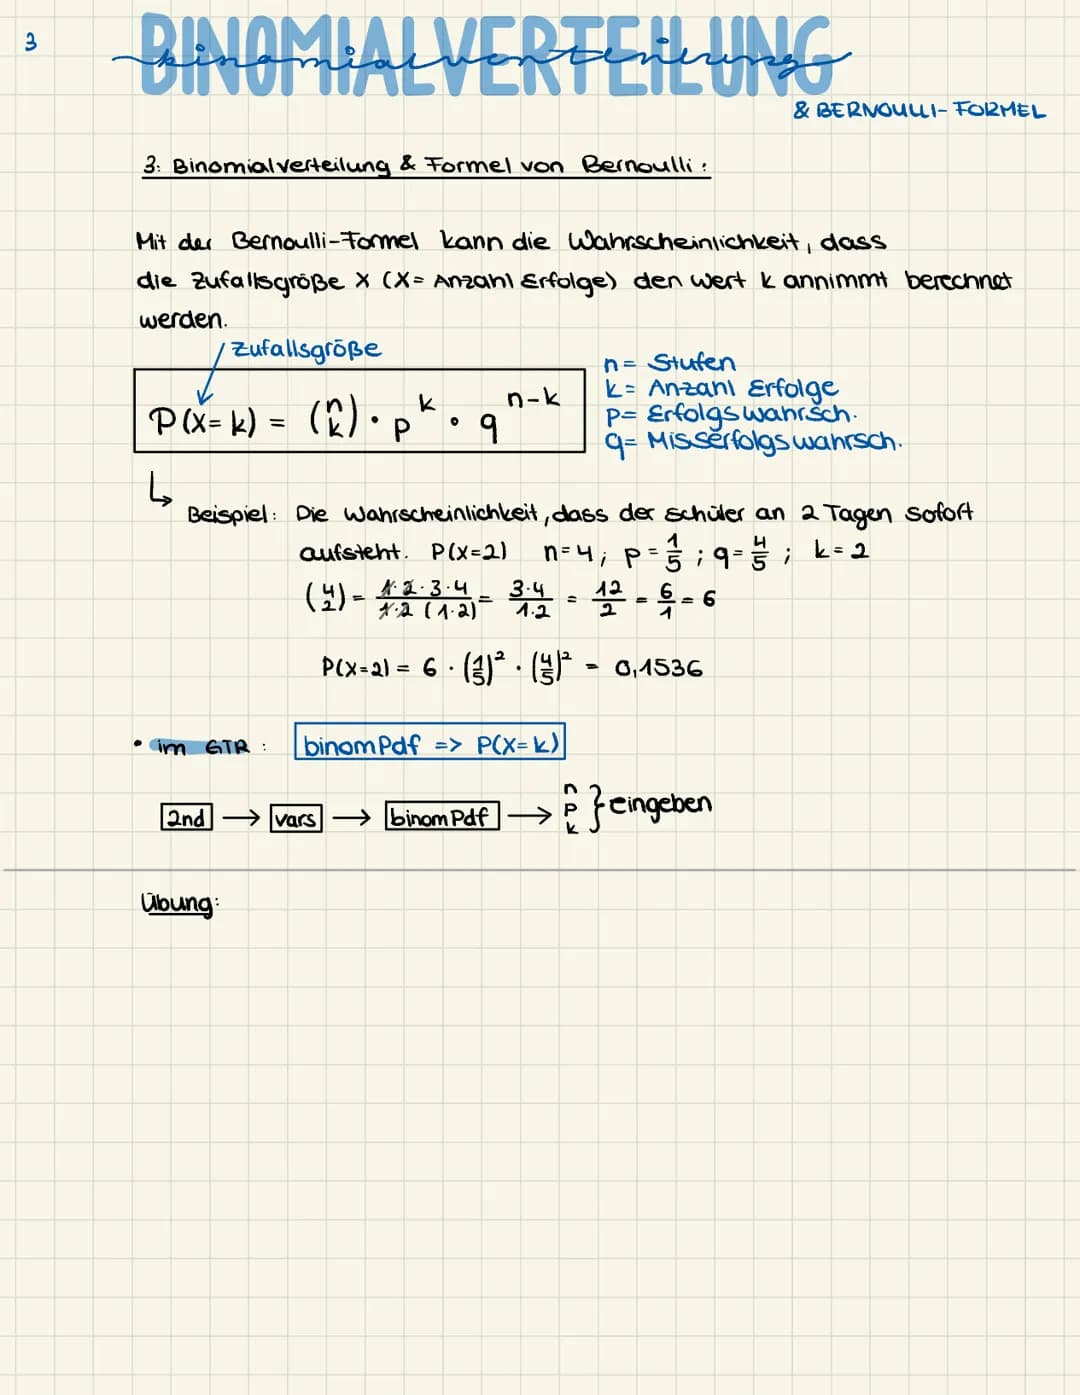 3
BINOMIALVERTEILUNG
binomialverteilung
& BERNOULLI-FORMEL
3. Binomialverteilung & Formel von Bernoulli:
Mit der Bernoulli-Formel kann die Wahrscheinlichkeit, dass
die Zufallsgröße X (X= Anzahl Erfolge) den Wert k annimmt berechnet
werden.
Zufallsgröße
P(X=k) = (n k) · p^k · q^n-k
n= Stufen
k= Anzahl Erfolge
p= Erfolgswahrsch.
q= Misserfolgswahrsch.
↳ Beispiel: Die Wahrscheinlichkeit, dass der Schüler an 2 Tagen sofort
aufsteht. P(X=2) n=4; p=1/5; q=4/5; k=2
(4 2) = 1·2·3·4/1·2(1·2) = 3·4/1·2 = 12/2 = 6/1 = 6
P(X=2) = 6 · (1/5)² · (4/5)² = 0,1536
• im GTR: binomPdf => P(X=k)
2nd → vars → binomPdf → n p k } eingeben
Übung: